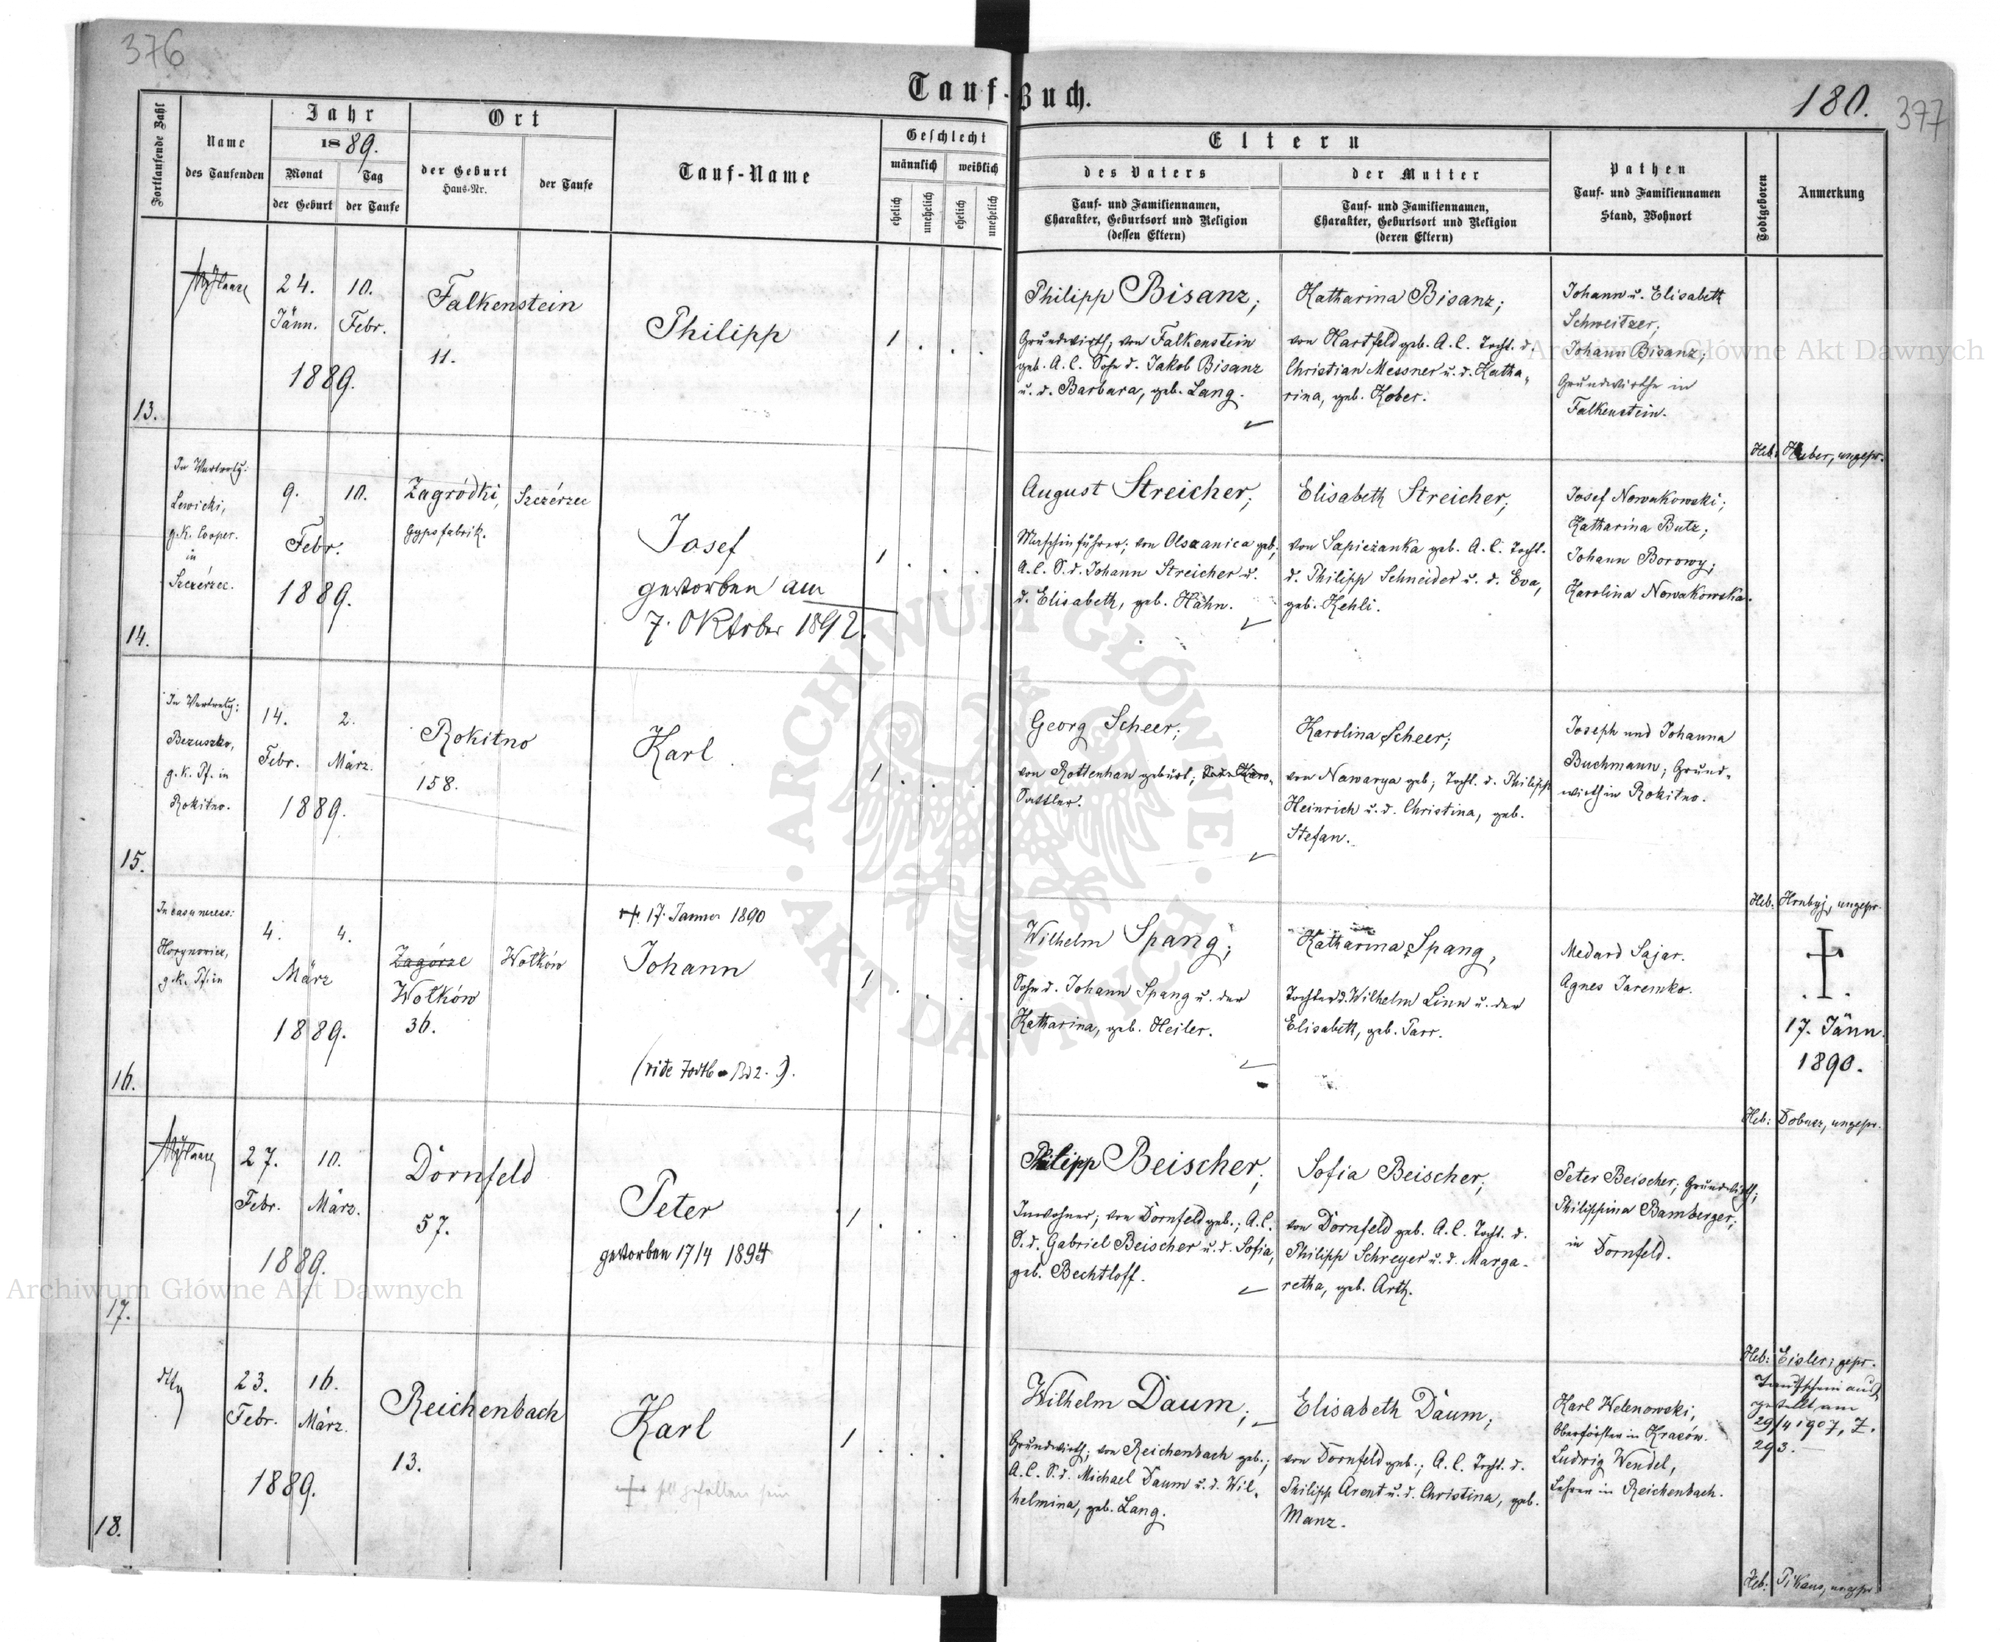 376
Tauf-Buch.
180.
377
Fortlaufende Zahl
Name
des Taufenden
Jahr
1889.
Monat
der Geburt
Tag
der Taufe
Ort
der Geburt
Haus-Nr.
der Taufe
Tauf-Name
Geschlecht
männlich
weiblich
ehelich
unehelich
ehelich
unehelich
Eltern
des Vaters
Tauf- und Familiennamen,
Charakter, Geburtsort und Religion
(dessen Eltern)
der Mutter
Tauf- und Familiennamen,
Charakter, Geburtsort und Religion
(deren Eltern)
Pathen
Tauf- und Familiennamen
Stand, Wohnort
Todtgeboren
Anmerkung
13.
24.
Jänn.
10.
Febr.
1889.
Falkenstein
11.
Philipp
1
Philipp Bisanz;
Grundwirth, von Falkenstein
geb. A. C. Sohn d. Jakob Bisanz
u. d. Barbara, geb. Lang.
Katharina Bisanz;
von Hartfeld geb. A. C. Tocht. d.
Christian Messner u. d. Katha-
rina, geb. Kober.
Johann u. Elisabeth
Schweitzer;
Johann Bisanz;
Grundwirthe in
Falkenstein.
Heb: Huber, ungepr.
14.
In Vertretg:
Lewicki,
g.k. Cooper.
in
Szczérzec.
9.
10.
Febr.
1889.
Zagródki,
Gypsfabrik.
Szczérzec
Josef
gestorben am
7. Oktober 1892.
1
August Streicher;
Maschinführer; von Olszanica geb;
A. C. S. d. Johann Streicher u.
d. Elisabeth, geb. Hähn.
Elisabeth Streicher;
von Sapieżanka geb. A. C. Tocht.
d. Philipp Schneider u. d. Eva,
geb. Kehli.
Josef Nowakowski;
Katharina Butz;
Johann Borowy;
Karolina Nowakowska.
15.
In Vertretg:
Bezuszko,
g.k. Pf. in
Rokitno.
14.
Febr.
2.
März.
1889.
Rokitno
158.
Karl
1
Georg Scheer;
von Rottenhan gebürt;
Sattler.
Karolina Scheer;
von Nawarya geb; Tocht. d. Philipp
Heinrich u. d. Christina, geb.
Stefan.
Joseph und Johanna
Buchmann; Grund-
wirth in Rokitno.
Heb: Hrabyj, ungepr.
16.
In casu necess:
g.k. Pf. in
4.
4.
März
1889.
Zagórze
Wołków
36.
Wołków
+. 17. Jänner 1890
Johann
(vide Todtb Bd 2. 9).
1
Wilhelm Spang;
Sohn d. Johann Spang u. der
Katharina, geb. Heiler.
Katharina Spang,
Tochter d. Wilhelm Linn u. der
Elisabeth, geb. Parr.
Medard Sajar.
Agnes Jaremko.
17. Jänn.
1890.
Heb: Dobusz, ungepr.
17.
27.
Febr.
10.
März.
1889.
Dornfeld
57.
Peter
gestorben 17/4 1894
1
Philipp Beischer;
Inwohner; von Dornfeld geb.; A. C.
S. d. Gabriel Beischer u. d. Sofia,
geb. Bechtloff.
Sofia Beischer;
von Dornfeld geb. A. C. Tocht. d.
Philipp Schreyer u. d. Marga-
retha, geb. Arth.
Peter Beischer; Grundwirth;
Philippina Bamberger;
in Dornfeld.
Heb: Eisler; gepr.
18.
23.
Febr.
16.
März.
1889.
Reichenbach
13.
Karl
+ soll gefallen sein
1
Wilhelm Daum;
Grundwirth; von Reichenbach geb.;
A. C. S. d. Michael Daum u. d. Wil-
helmina, geb. Lang.
Elisabeth Daum;
von Dornfeld geb.; A. C. Tocht. d.
Philipp Arent u. d. Christina, geb.
Manz.
Karl Welenowski,
Oberförster in Kraców.
Ludwig Wendel,
Lehrer in Reichenbach.
Taufschein aus-
gestellt am
29/4 1907, Z.
293.
Heb: ungepr.
Archiwum Główne Akt Dawnych
Archiwum Główne Akt Dawnych
ARCHIWUM GŁÓWNE AKT DAWNYCH